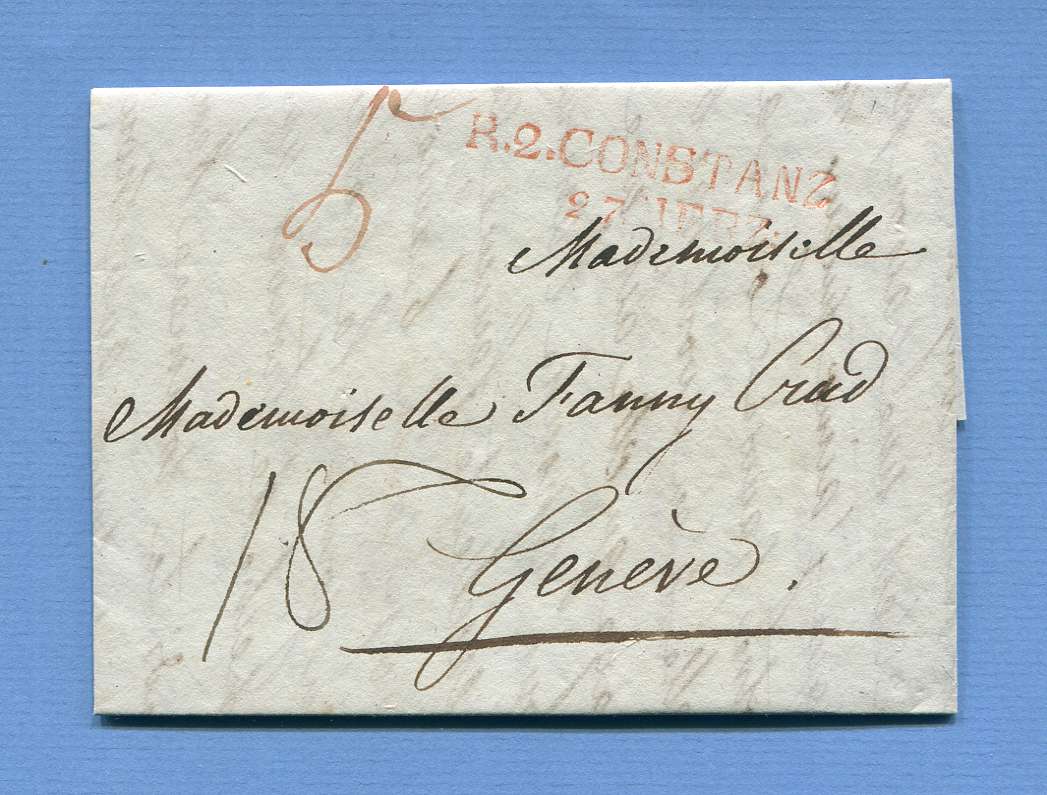 5
R.2.CONSTANZ
27 MERZ.
Mademoiselle
Mademoiselle Fanny Crud
18
Genève.